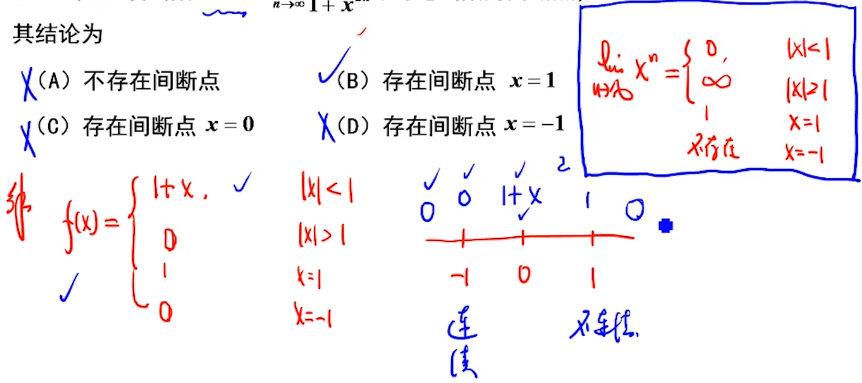 n→∞ 1 + x
其结论为
X (A) 不存在间断点 ✓ (B) 存在间断点 x = 1
X (C) 存在间断点 x = 0 X (D) 存在间断点 x = −1
lim n→∞ xⁿ = { 0, |x|<1
∞ |x|>1
1 x=1
不存在 x=-1
f(x) = { 1+x, ✓ |x|<1
0 |x|>1
1 x=1
0 x=-1
✓
✓ ✓ ✓ 2
0 0 1+x 1 0
✓
-1 0 1
连续 不连续